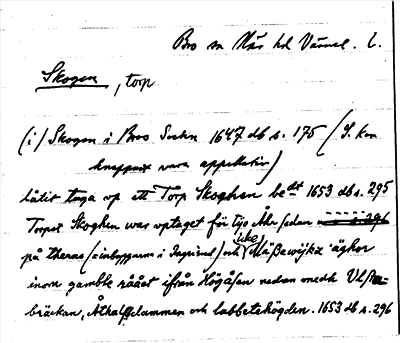 Bro sn Näs hd Värml. l.
Skogen, torp
(i) Skogen i Broo Sochn 1647 db s. 175 (S. kan
knappast vara appellativ)
låtit taga op ett Torp Skoghen be dt 1653 db s. 295
Torpet Skoghen war optaget för tijo Åhr sedan
på theras (= inbyggarna i ) och icke Mäßewijkz ägkor
inom gamble rååët ifrån Högåsen nedan medh
bräckan, Åthalsdammen och labbetshögden. 1653 db s. 296